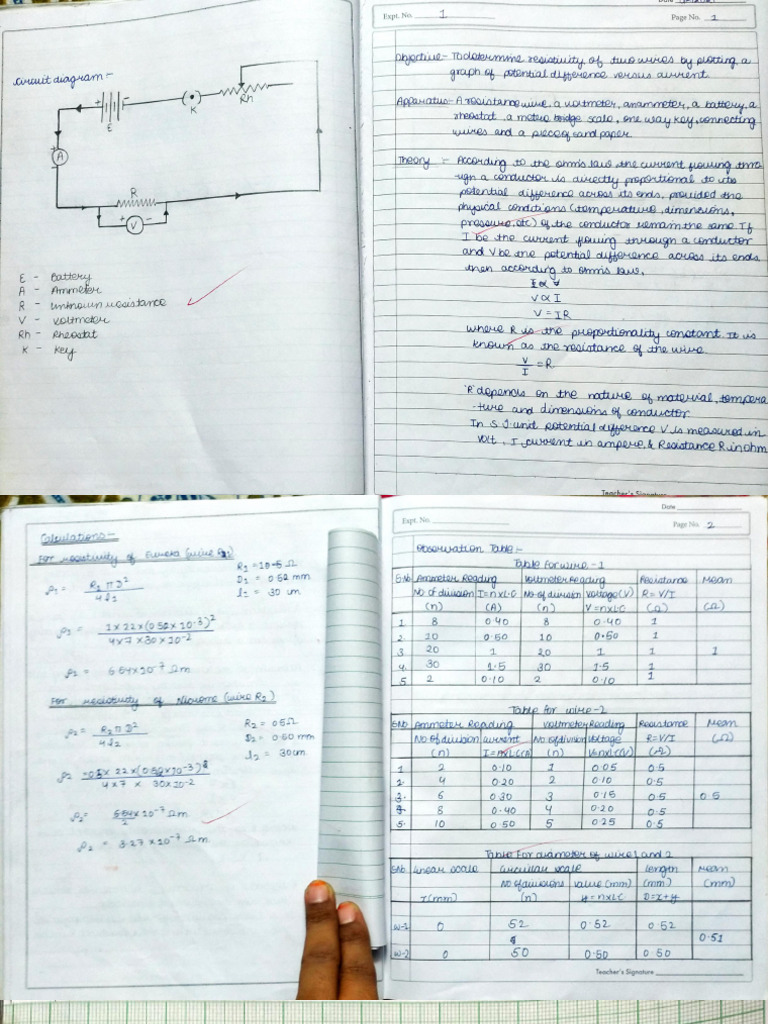 Circuit diagram:-
+
-
E
K
Rh
+
A
-
R
+
V
-
E - Battery
A - Ammeter
R - unknown resistance
V - voltmeter
Rh - Rheostat
K - Key
Date
Expt. No. 1
Page No. 1
Objective:- To determine resistivity of two wires by plotting a
graph of potential difference versus current.
Apparatus:- A resistance wire, a voltmeter, an ammeter, a battery, a
rheostat, a metre bridge scale, one way key, connecting
wires and a piece of sand paper.
Theory :- According to the ohm's law the current flowing thro-
ugh a conductor is directly proportional to its
potential difference across its ends, provided the
physical conditions (temperature, dimensions,
pressure, etc) of the conductor remain the same. If
I be the current flowing through a conductor
and V be the potential difference across its ends,
then according to ohm's law,
I ∝ V
V ∝ I
V = IR
where R is the proportionality constant. It is
known as the resistance of the wire.
V/I = R
'R' depends on the nature of material, tempera
-ture and dimensions of conductor
In S.I unit potential difference V is measured in
volt, I, current in ampere, & Resistance R in ohm
Teacher's Signature
Calculations:-
For resistivity of Eureka (wire R1)
ρ1 = R1 π D² / 4 l1
R1 = 10-5 Ω
D1 = 0.52 mm
l1 = 30 cm
ρ1 = 1×22×(0.52×10⁻³)² / 4×7×30×10⁻²
ρ1 = 6.54×10⁻⁷ Ωm
For resistivity of Nichrome (wire R2)
ρ2 = R2 π D² / 4 l2
R2 = 0.5Ω
D2 = 0.50 mm
l2 = 30cm
4×7 × 30×10⁻²
ρ2 = 6.54/2 ×10⁻⁷ Ωm
ρ2 = 3.27×10⁻⁷ Ωm
Date
Expt. No.
Page No. 2
Observation Table:-
Table for wire-1
S.No Ammeter Reading Voltmeter Reading Resistance Mean
No of division I=n×L.C No. of division Voltage(V) R = V/I (Ω)
(n) (A) (n) V=n×L.C (Ω)
1. 8 0.40 8 0.40 1
2. 10 0.50 10 0.50 1
3 20 1 20 1 1 1
4. 30 1.5 30 1.5 1
5. 2 0.10 2 0.10 1
Table for wire-2
S.No Ammeter Reading Voltmeter Reading Resistance Mean
No of division current No of division Voltage R=V/I (Ω)
(n) I=n×L.C(A) (n) V=n×LC(V) (Ω)
1 2 0.10 1 0.05 0.5
2. 4 0.20 2 0.10 0.5
3. 6 0.30 3 0.15 0.5 0.5
4. 8 0.40 4 0.20 0.5
5. 10 0.50 5 0.25 0.5
Table For diameter of wire 1 and 2
S.No. Linear scale Circular scale Length Mean
No of divisions value (mm) (mm) (mm)
x(mm) (n) y=n×LC D=x+y
w-1 0 52 0.52 0.52
0.51
w-2 0 50 0.50 0.50
Teacher's Signature